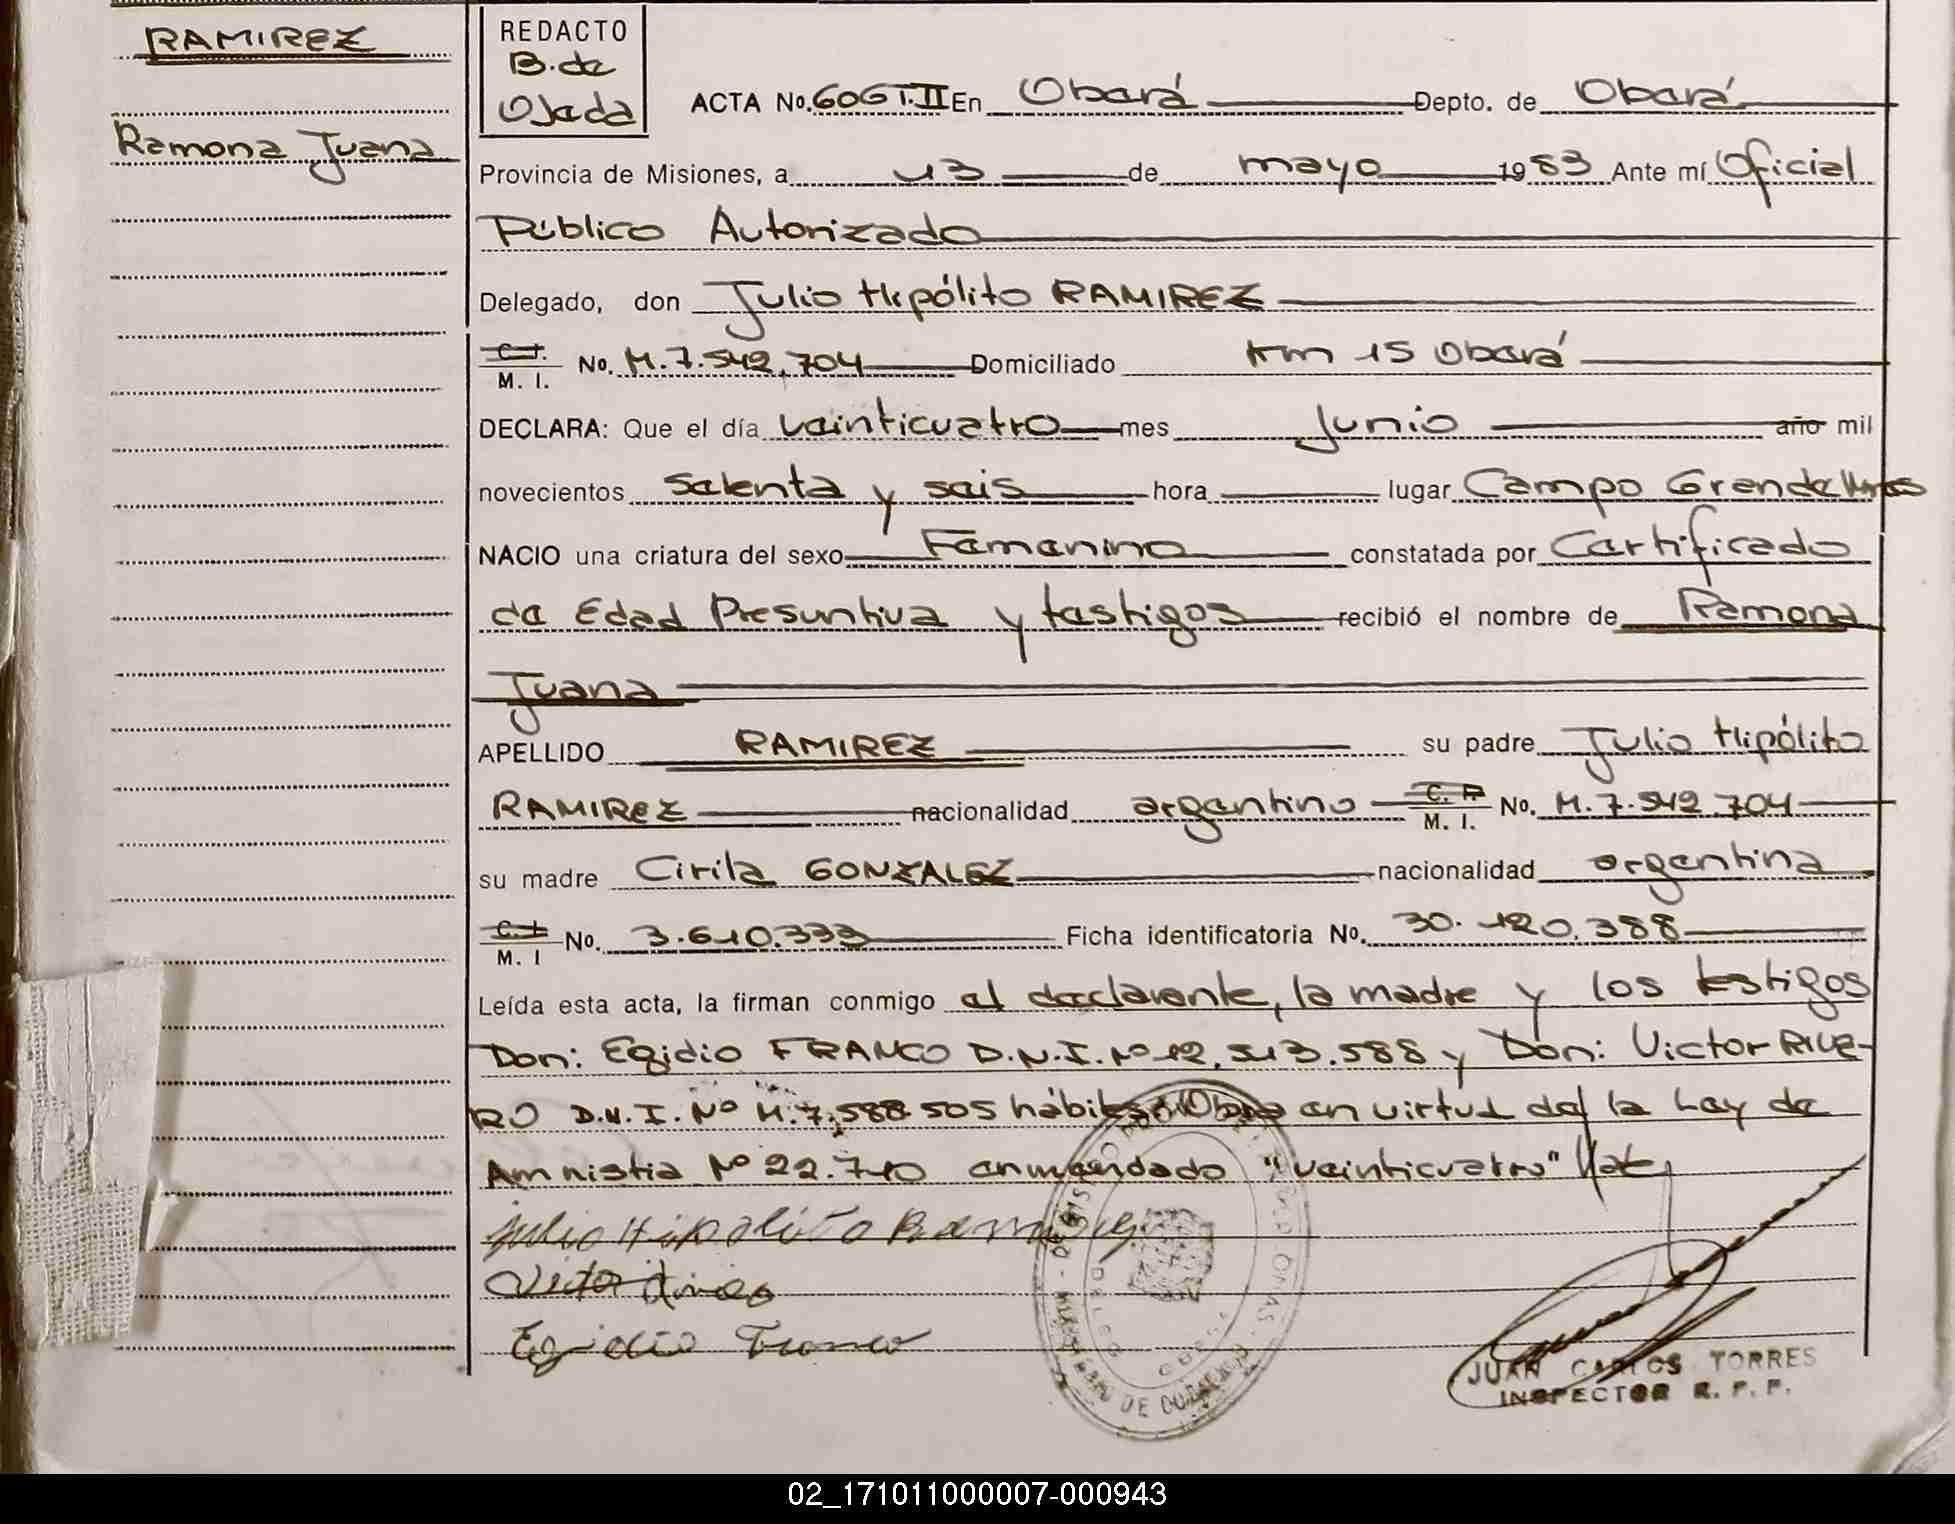 RAMIREZ
Ramona Juana
REDACTO
B. de
Ojeda
ACTA No. 606 T. II En Oberá Depto. de Oberá
Provincia de Misiones, a 13 de mayo 1983 Ante mí Oficial
Público Autorizado
Delegado, don Julio Hipólito RAMIREZ
C. I. M. I. No. M. 7.542.704 Domiciliado Km 15 Oberá
DECLARA: Que el día veinticuatro mes Junio año mil
novecientos setenta y seis hora lugar Campo Grande Mnes
NACIO una criatura del sexo Femenino constatada por Certificado
de Edad Presuntiva y testigos recibió el nombre de Ramona
Juana
APELLIDO RAMIREZ su padre Julio Hipólito
RAMIREZ nacionalidad argentino C. I. M. I. No. M. 7.542.704
su madre Cirila GONZALEZ nacionalidad argentina
C. I. M. I No. 3.610.333 Ficha identificatoria No. 30.120.388
Leída esta acta, la firman conmigo el declarante, la madre y los testigos
Don: Egidio FRANCO D.N.I. Nº 12.513.588 y Don: Victor RIVE-
RO D.N.I. Nº M. 7.588.505 hábiles en virtud de la Ley de
Amnistia Nº 22.710 enmendado "veinticuatro"
Julio Hipolito Ramirez
Victor
Egidio Franco
JUAN CARLOS TORRES
INSPECTOR R. P. P.
02_171011000007-000943